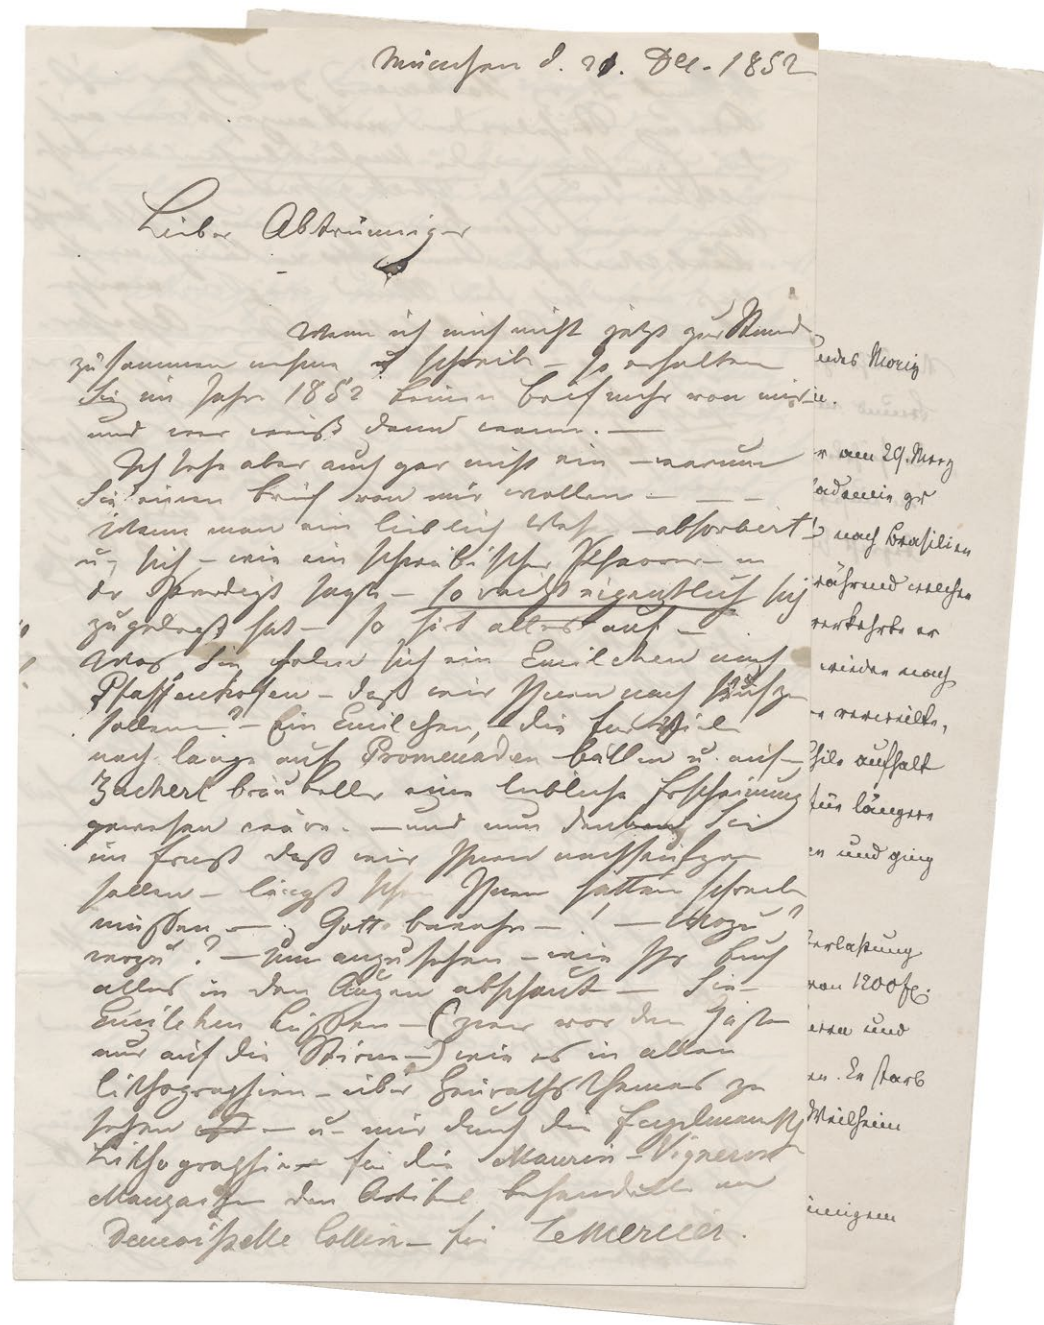 München d. 21. Dec. 1852
Lieber Abtrünniger
Wenn ich mich nicht jetzt zur Stund
zusammen nehme u schreib – so erhalten
Sie im Jahr 1852 keinen Brief mehr von mir
und wer weiß dann wann. —
Ich sehe aber auch gar nicht ein – warum
Sie einen Brief von mir wollen — — —
Wenn man ein lieblich absorbirt
u. sich – wie ein schwäbischer Pfarrer in
der Predigt sagt – so recht eigentlich sich
zugelegt hat – so hört alles auf –
Was Sie holen sich ein Emilchen nach
Pfaffenhofen – daß wir Ihnen nach
sollen? – Ein Emilchen, – die
noch lange auf Promenaden – bällen u. auf
Zacherl bräukeller eine liebliche Erscheinung
gewesen wäre. – und nun denken Sie
im Ernst daß wir Ihnen nachseufzen
sollen – längst schon Ihnen hätten schreiben
müssen – Gott bewahre – ! – wozu?
wozu? – Um anzusehen – wie Ihr Euch
alles in den Augen abschaut – Sie –
Emilchen küssen – (zwar vor den Gästen
nur auf die Stirne –) wie es in allen
Lithographien – über Heiraths themas zu
sehen – u – wir durch die
Lithographie – für die Maurin – Vigneron
den Artikel behandelt
Demoiselle Collin – für Lemercier.
Moriz
am 29. Merz
Academie zu
nach Brasilien
während welcher
verkehrte er
wieder nach
verweilte,
aufhalt
für längere
und ging
von 1200 fl.
und
. Er starb
Weilheim
einigem